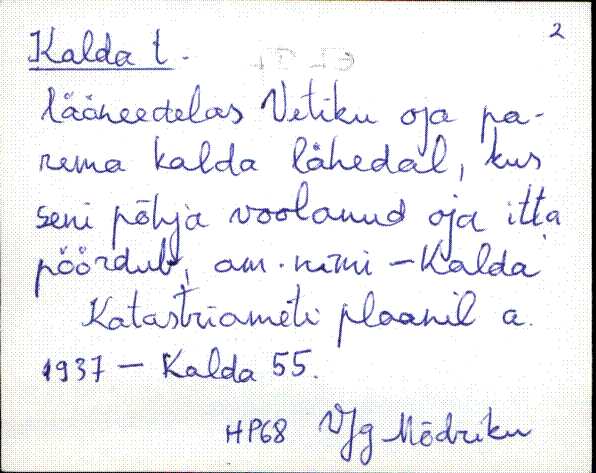 2
Kalda t.
lääneedelas Vetiku oja pa-
rema kalda lähedal, kus
seni põhja voolanud oja itta
pöördub, am. nimi - Kalda
Katastriameti plaanil a.
1937 - Kalda 55.
HP68 VJg Mõdriku